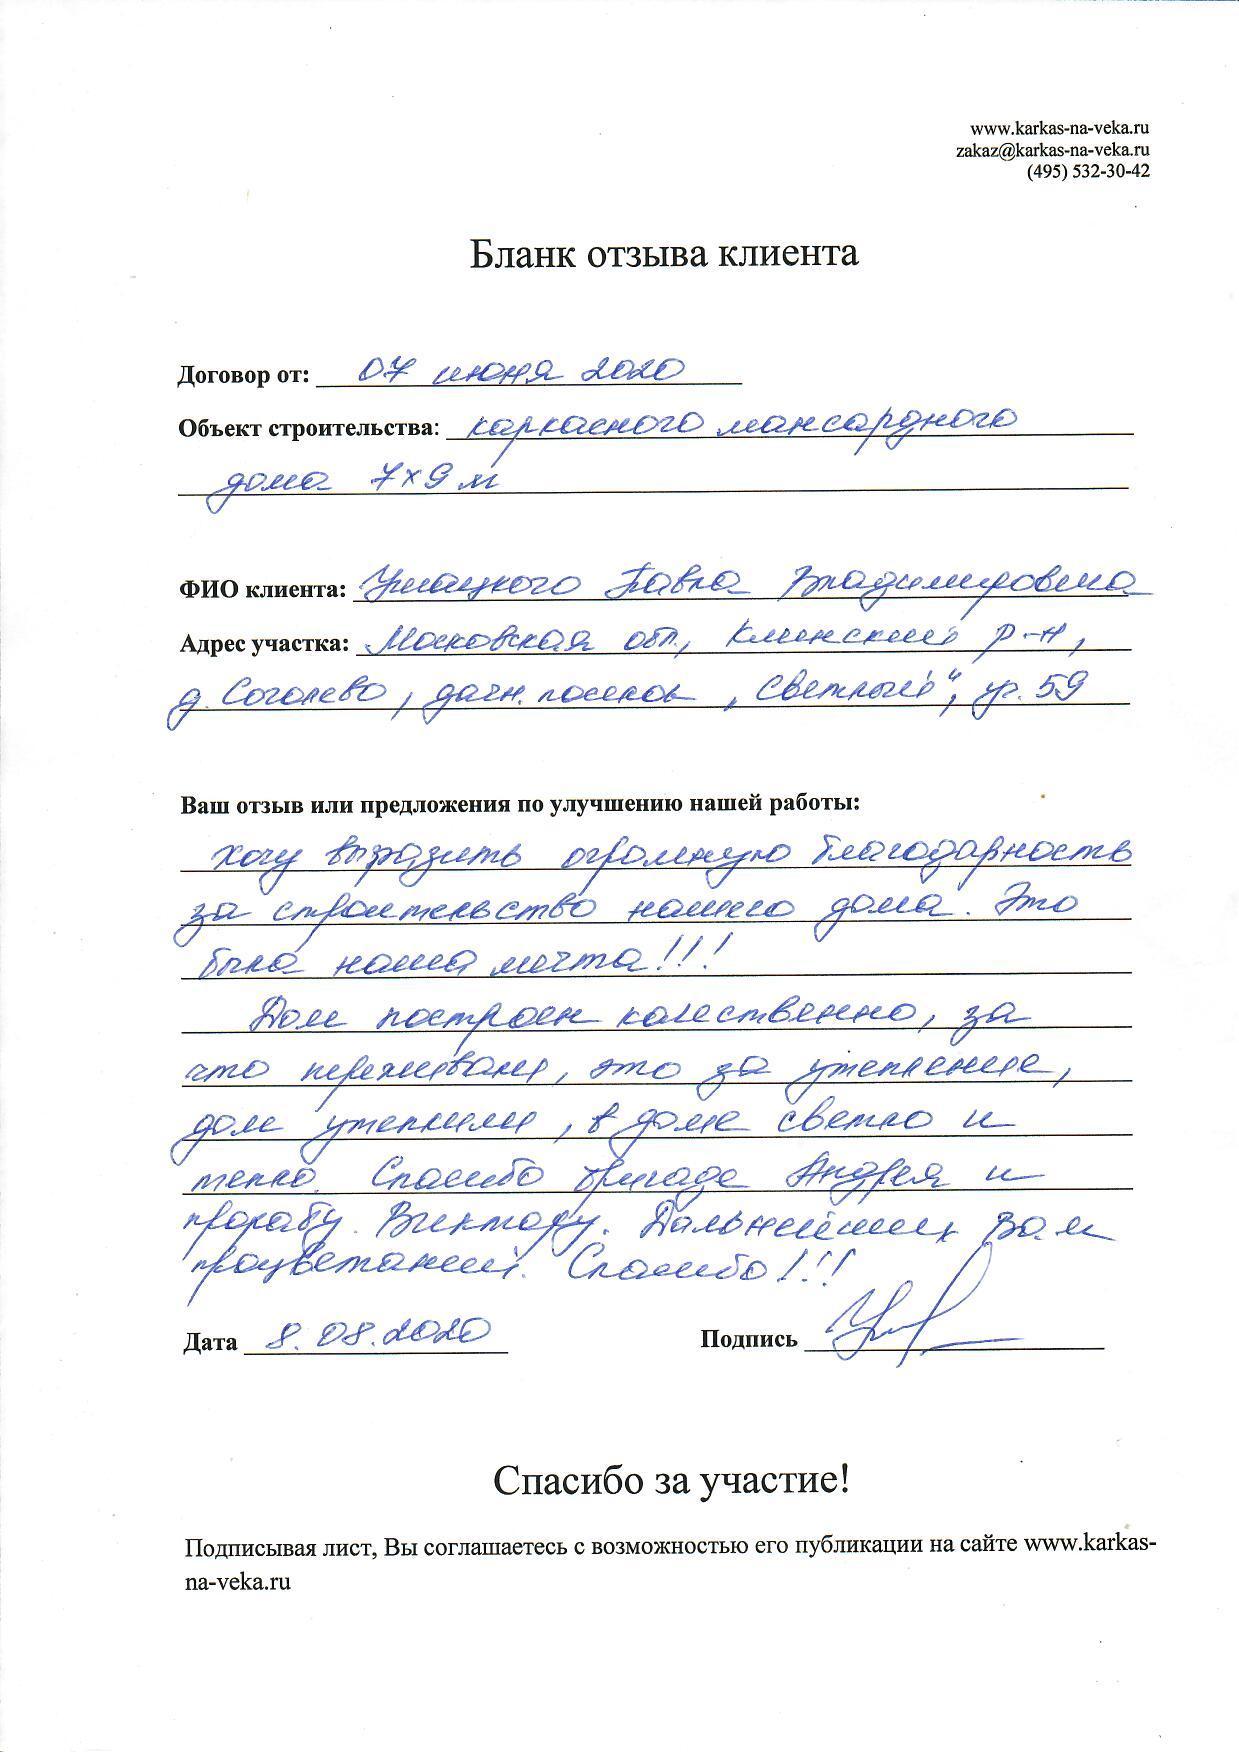 www.karkas-na-veka.ru
zakaz@karkas-na-veka.ru
(495) 532-30-42
Бланк отзыва клиента
Договор от: 07 июня 2020
Объект строительства: каркасного мансардного
дома 7х9 м
ФИО клиента: Павла Владимировича
Адрес участка: Московская обл., Клинский р-н,
д. Соголево, дачн. поселок „Светлый", уч. 59
Ваш отзыв или предложения по улучшению нашей работы:
Хочу выразить огромную благодарность
за строительство нашего дома. Это
была наша мечта!!!
Дом построен качественно, за
что переживали, это за утепление,
дом утеплили, в доме светло и
тепло. Спасибо бригаде Андрея и
прорабу Виктору. Дальнейших Вам
процветаний. Спасибо!!!
Дата 8.08.2020 Подпись
Спасибо за участие!
Подписывая лист, Вы соглашаетесь с возможностью его публикации на сайте www.karkas-
na-veka.ru